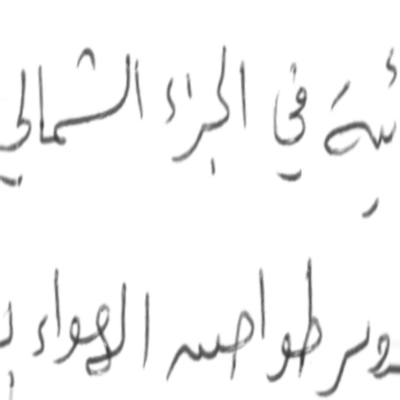 في الجزء الشمالي
طواحين الهواء